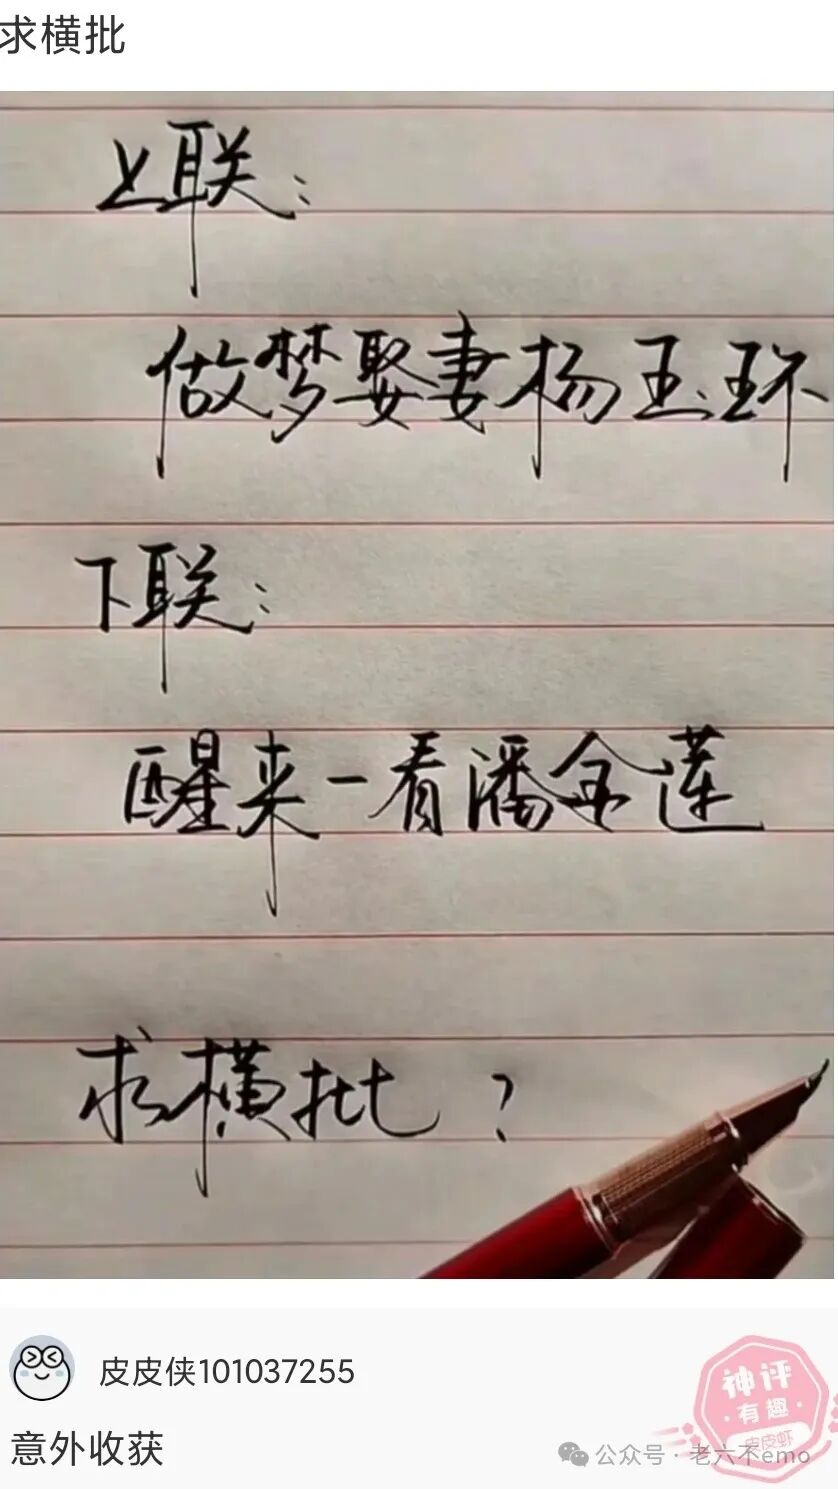 求横批
上联：
做梦娶妻杨玉环
下联：
醒来一看潘金莲
求横批？
皮皮侠101037255
意外收获
神评
有趣
皮皮虾
公众号·老六不emo